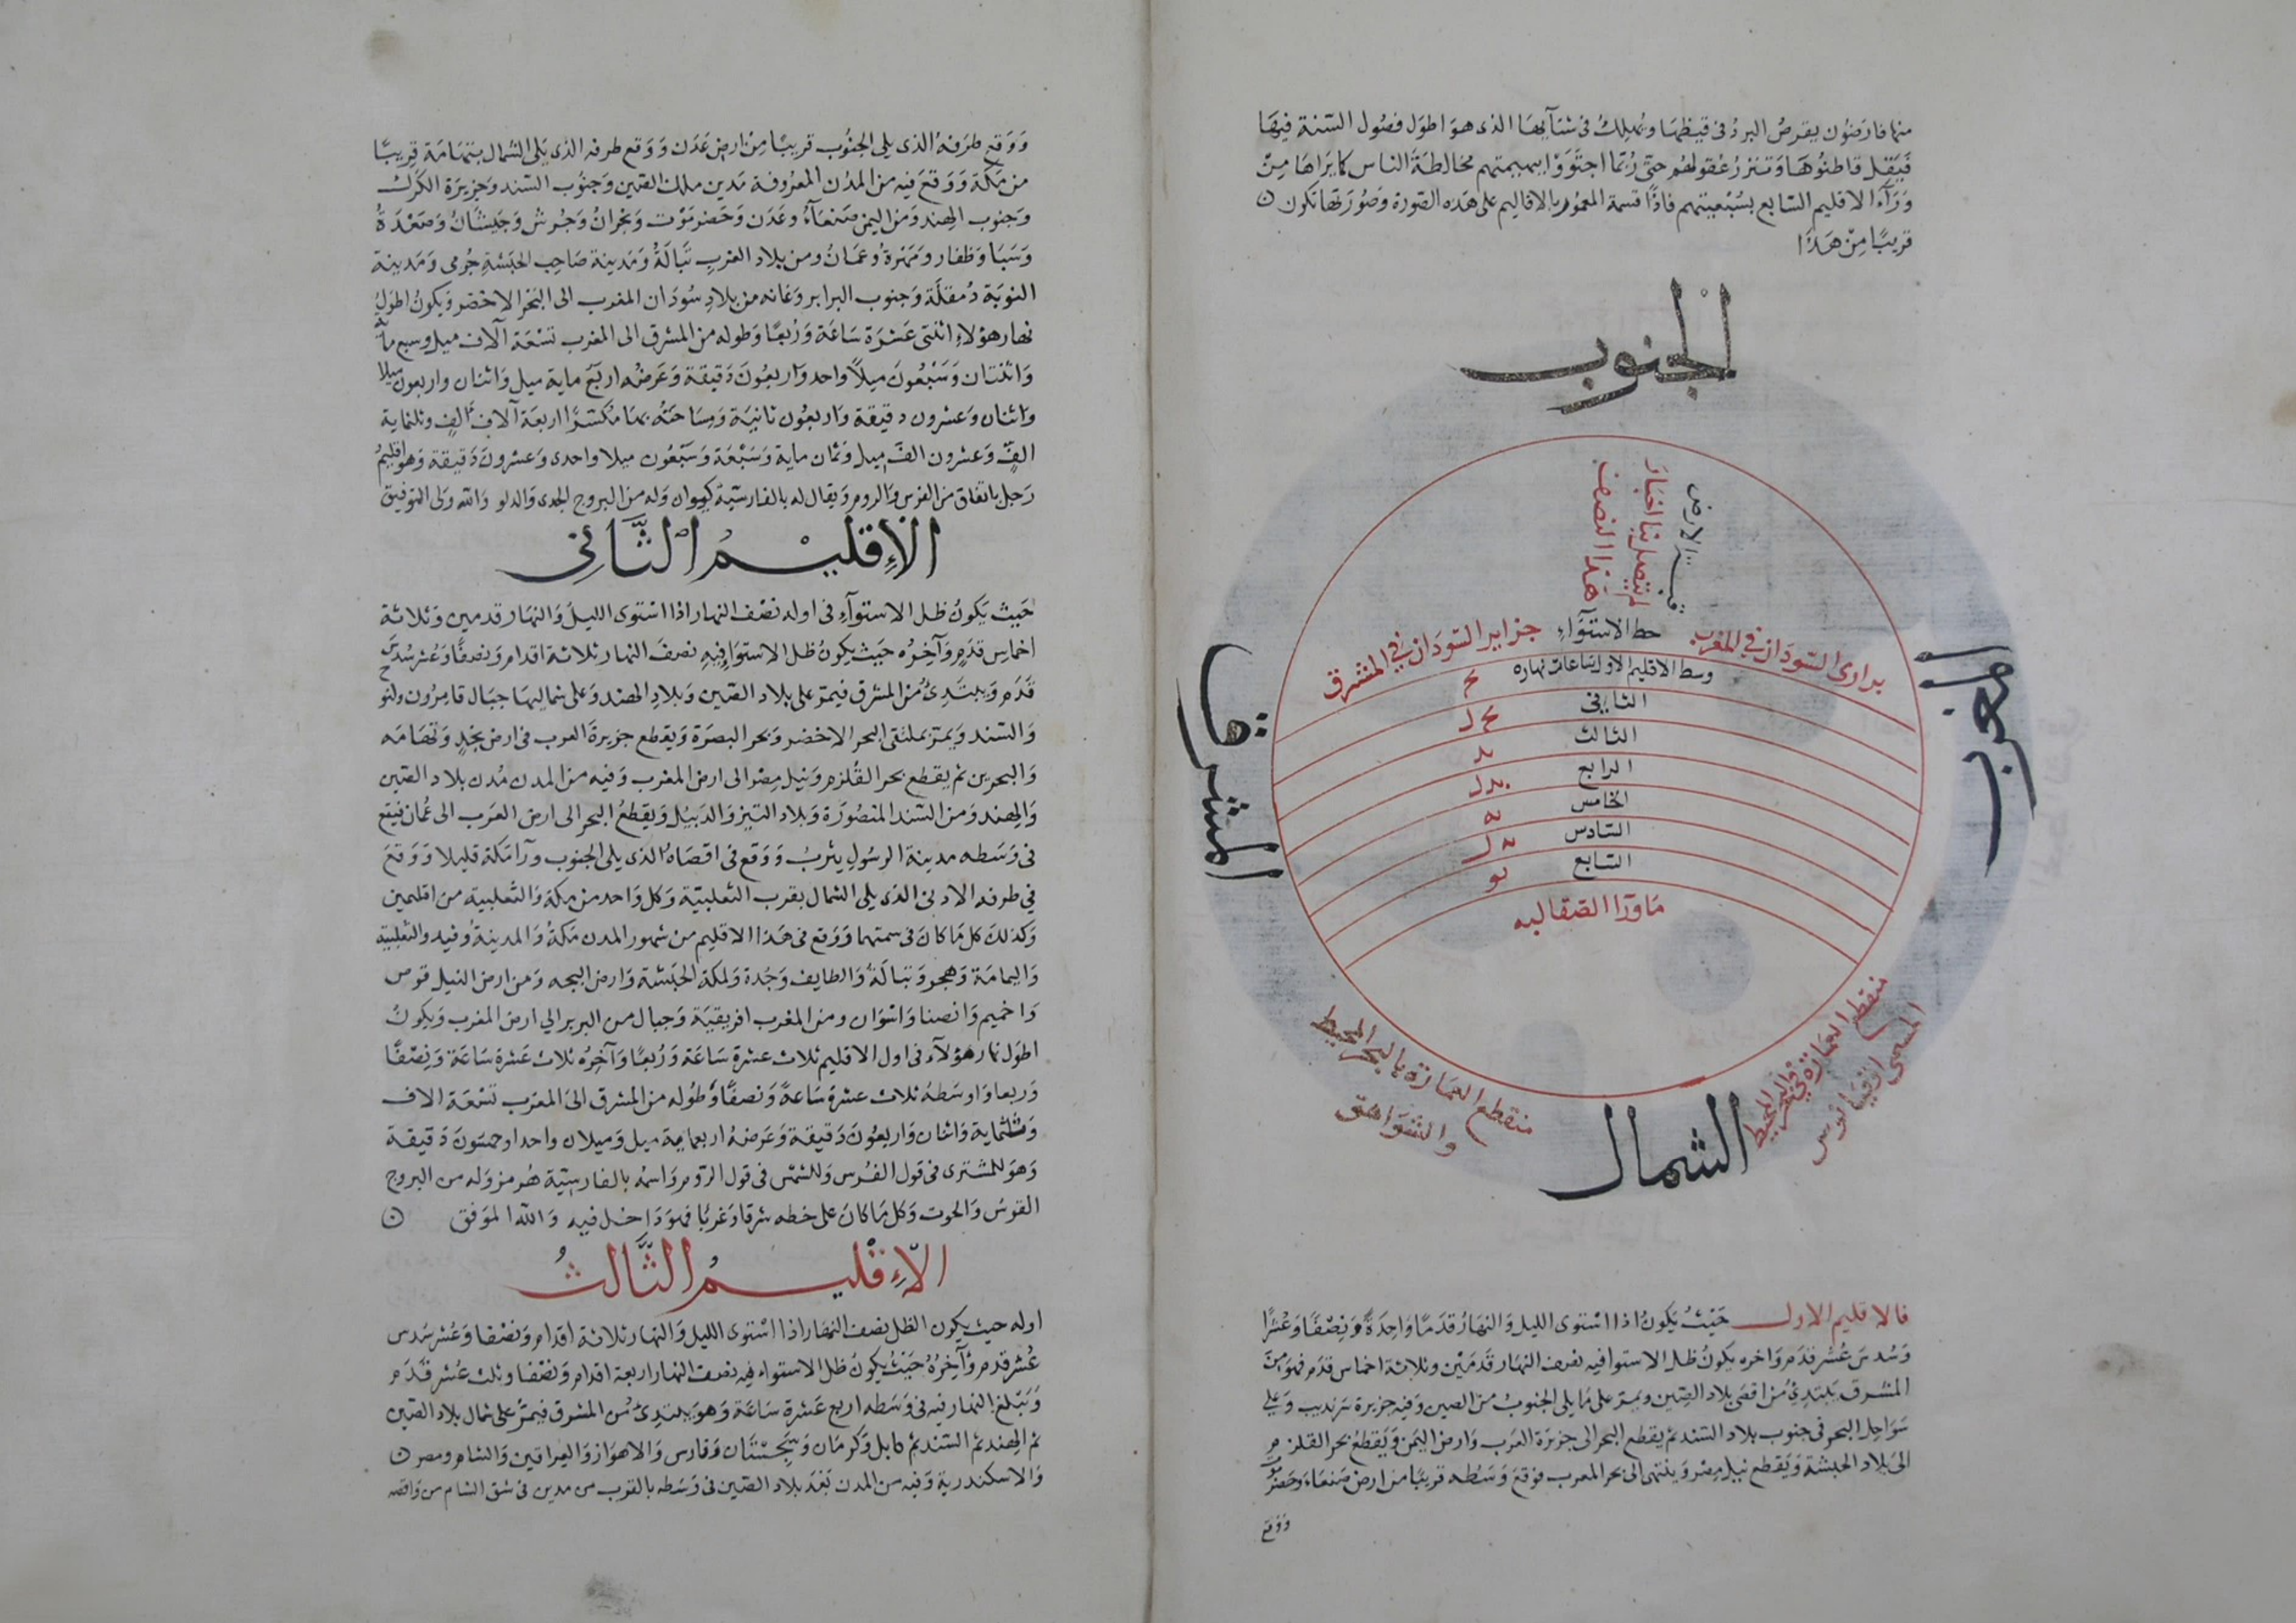 منها فارضون يقرص البرد في قيظها ويهلك في شتآيها الذي هو اطول فصول السنة فيها
فيقل قاطنوها وتنزر عقولهم حتى ربما اجتووا ببهيميتهم مخالطة الناس كما يراها من
ورآء الاقليم السابع بسبعيتهم فاذًا قسمة المعمور بالاقاليم على هذه الصورة وصورتها تكون
قريبًا من هذا
الجنوب
الارض
لم يتصل بنا اخبار
هذا النصف
براري السودان في المغرب
خط الاستوآء
جزاير السودان في المشرق
وسط الاقليم الاول ساعات نهاره
الثاني
الثالث
الرابع
الخامس
السادس
السابع
ماورآ الصقالبه
المغرب
المشرق
منقطع العمارة بالبحر المحيط
المسمى اوقيانوس
منقطع العمارة بالبرد
والشواهق
الشمال
فالاقليم الاول حيث يكون اذا استوى الليل والنهار قدمًا واحدة ونصفًا وعشرًا
وسدس عشر قدم واخره يكون ظل الاستوا فيه نصف النهار قدمين وثلاثة اخماس قدم فهو من
المشرق يبتدئ من اقصى بلاد الصين ويمر على ما يلي الجنوب من الصين وفيه جزيرة سرنديب وعلى
سواحل البحر في جنوب بلاد السند ثم يقطع البحر الى جزيرة العرب وارض اليمن ويقطع بحر القلزم
الى بلاد الحبشة ويقطع نيل مصر وينتهي الى بحر المغرب فوقع وسطه قريبًا من ارض صنعاء وحضرموت
ووقع
ووقع طرفه الذي يلي الجنوب قريبًا من ارض عدن ووقع طرفه الذي يلي الشمال بتهامة قريبًا
من مكة ووقع فيه من المدن المعروفة مدين ملك الصين وجنوب السند وجزيرة الكرك
وجنوب الهند ومن اليمن صنعآء وعدن وحضرموت ونجران وجرش وجيشان وصعدة
وسبا وظفار ومهرة وعمان ومن بلاد العرب تبالة ومدينة صاحب الحبشة جرمى ومدينة
النوبة دمقلة وجنوب البرابر وغانه من بلاد سودان المغرب الى البحر الاخضر ويكون اطول
نهار هؤلاء اثنتى عشرة ساعة وربعًا وطوله من المشرق الى المغرب تسعة آلاف ميل وسبع مآية
واثنتان وسبعون ميلًا واحد واربعون دقيقة وعرضه اربع ماية ميل واثنان واربعون ميلا
واثنان وعشرون دقيقة واربعون ثانية ومساحته بها مكسرًا اربعة آلاف الف وثلثماية
الف وعشرون الف ميل وثمان ماية وسبعة وسبعون ميلا واحدى وعشرون دقيقة وهو اقليم
زحل باتفاق من الفرس والروم ويقال له بالفارسية كيوان وله من البروج الجدى والدلو والله ولى التوفيق
الإقليم الثاني
حيث يكون ظل الاستوآء في اوله نصف النهار اذا استوى الليل والنهار قدمين وثلاثة
اخماس قدم وآخره حيث يكون ظل الاستواء فيه نصف النهار ثلاثة اقدام ونصفًا وعشر سدس
قدم ويبتدئ من المشرق فيمر على بلاد الصين وبلاد الهند وعلى شماليها جبال قامرون
والسند ويمر بملتقى البحر الاخضر وبحر البصرة ويقطع جزيرة العرب في ارض نجد وتهامه
والبحرين ثم يقطع بحر القلزم ونيل مصر الى ارض المغرب وفيه من المدن مدن بلاد الصين
والهند ومن السند المنصورة وبلاد التيز والديبل ويقطع البحر الى ارض العرب الى عمان فيقع
في وسطه مدينة الرسول يثرب ووقع في اقصاه الذي يلي الجنوب ورآ مكة قليلا ووقع
في طرفه الادنى الذي يلي الشمال بقرب الثعلبية وكل واحد من مكة والثعلبية من اقليمين
وكذلك كل ما كان في سمتهما ووقع في هذا الاقليم من شهور المدن مكة والمدينة وفيد والثعلبية
واليمامة وهجر وتبالة والطايف وجدة ومملكة الحبشة وارض البجه ومن ارض النيل قوص
واخميم وانصنا واسوان ومن المغرب افريقية وجبال من البربر الي ارض المغرب ويكون
اطول نهار هؤلآء في اول الاقليم ثلاث عشرة ساعة وربعًا وآخره ثلاث عشرة ساعة ونصفًا
وربعا واوسطه ثلاث عشرة ساعة ونصفًا وطوله من المشرق الى المغرب تسعة الاف
وثلثماية واثنان واربعون دقيقة وعرضه اربعماية ميل وميلان واحدا وخمسون دقيقة
وهو للمشترى في قول الفرس وللشمس في قول الروم واسمه بالفارسية هرمز وله من البروج
القوس والحوت وكل ما كان على خطه شرقا وغربًا فهو داخل فيه والله الموفق
الإقليم الثالث
اوله حيث يكون الظل نصف النهار اذا استوى الليل والنهار ثلاثة اقدام ونصفا وعشر سدس
عشر قدم وآخره حيث يكون ظل الاستواء فيه نصف النهار اربعة اقدام ونصفا وثلث عشر قدم
ويبلغ النهار فيه في وسطه اربع عشرة ساعة وهو يبتدئ من المشرق فيمر على شمال بلاد الصين
ثم الهند ثم السند ثم كابل وكرمان وسجستان وفارس والاهواز والعراقين والشام ومصر
والاسكندرية وفيه من المدن بعد بلاد الصين في وسطه بالقرب من مدين في شق الشام من واقصه